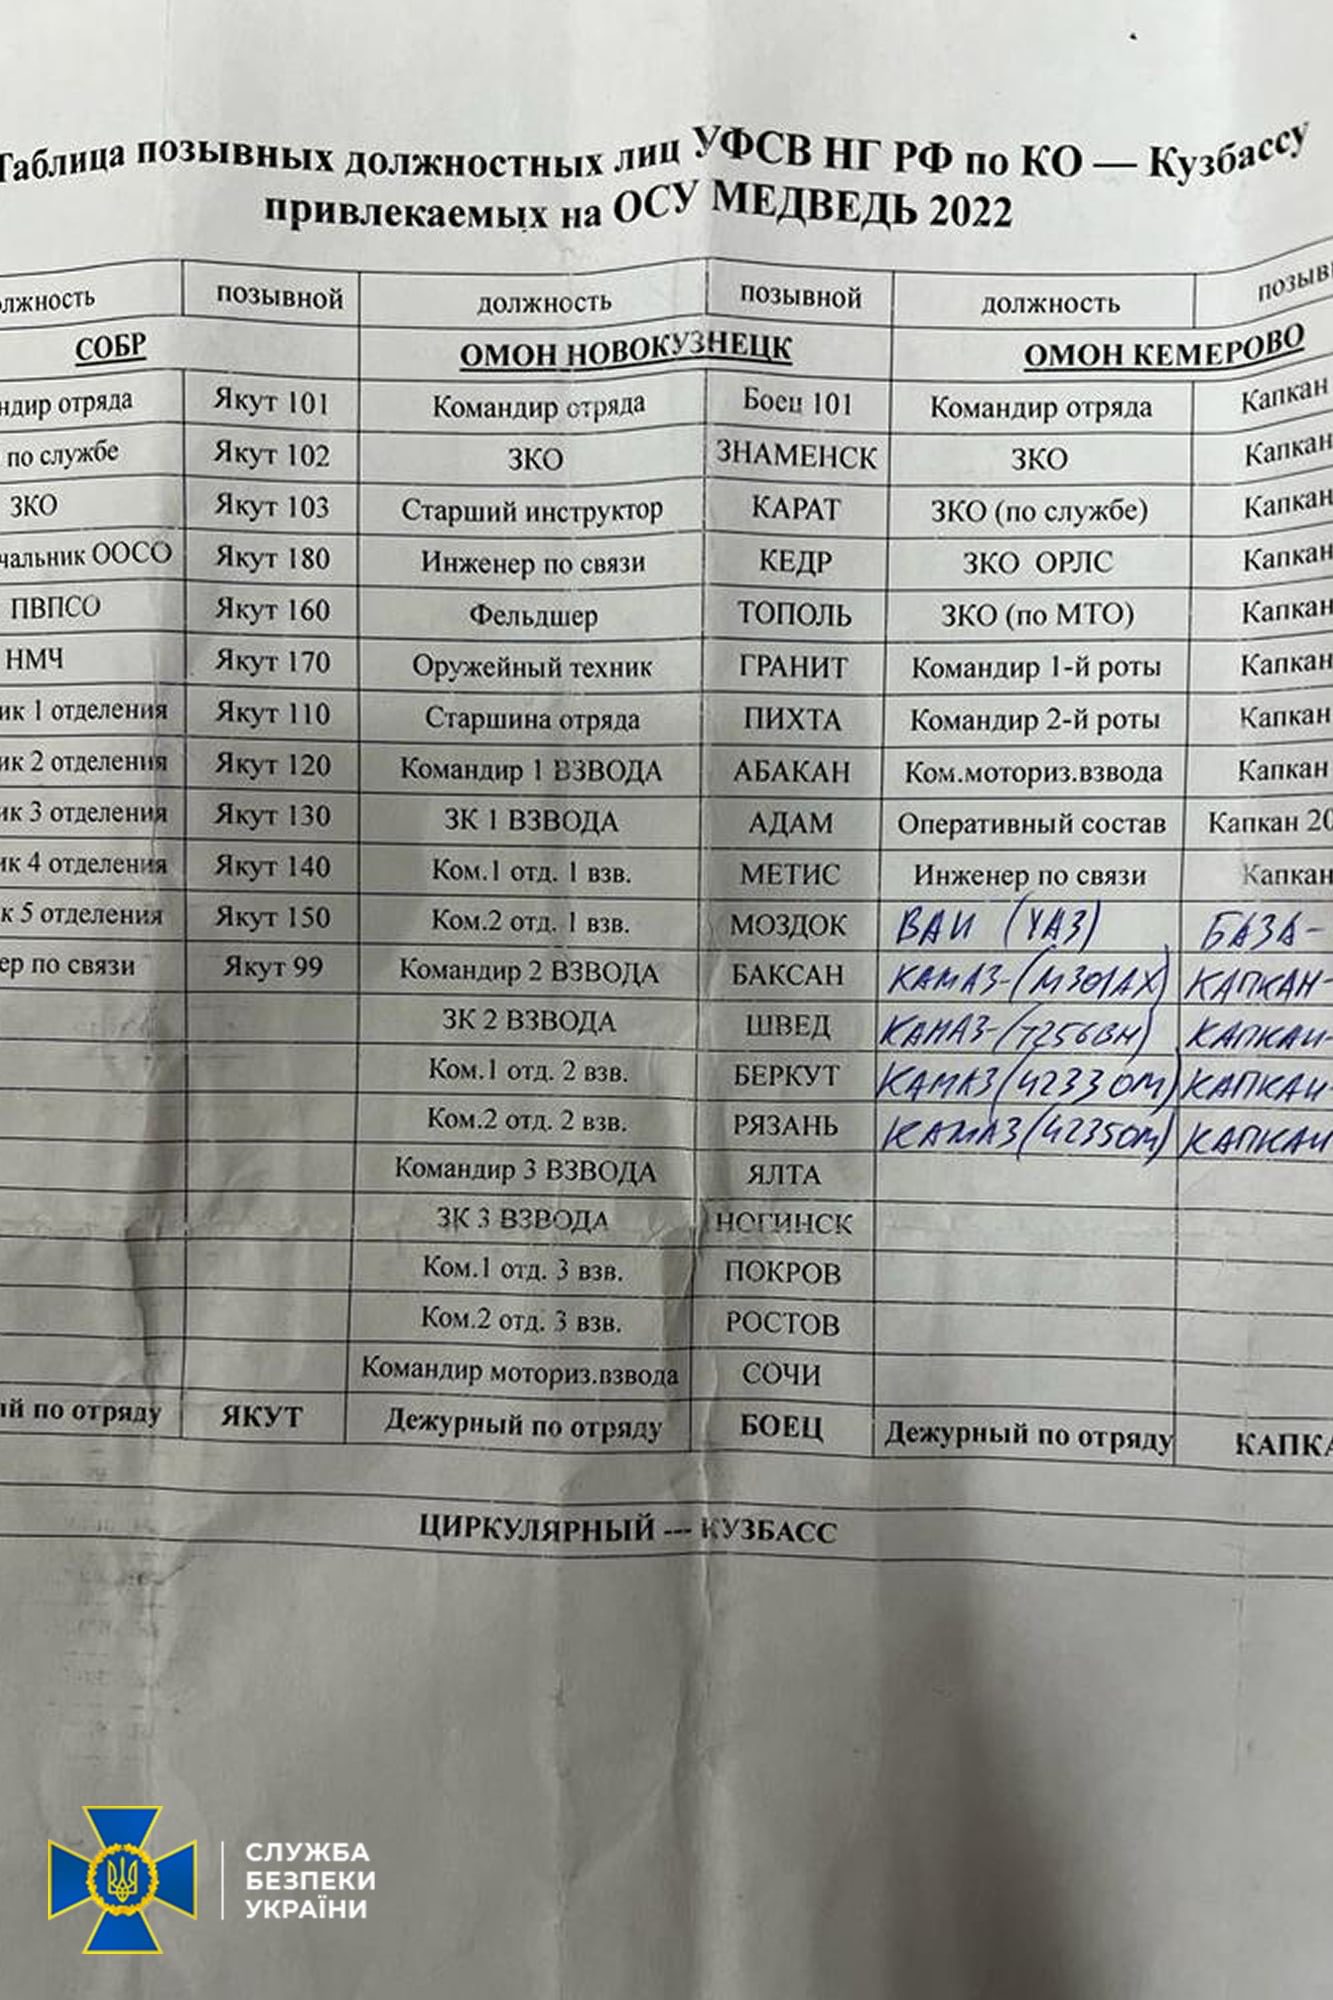 Таблица позывных должностных лиц УФСВ НГ РФ по КО — Кузбассу
привлекаемых на ОСУ МЕДВЕДЬ 2022
олжность позывной должность позывной должность позывн
СОБР ОМОН НОВОКУЗНЕЦК ОМОН КЕМЕРОВО
ндир отряда Якут 101 Командир отряда Боец 101 Командир отряда Капкан
по службе Якут 102 ЗКО ЗНАМЕНСК ЗКО Капкан
ЗКО Якут 103 Старший инструктор КАРАТ ЗКО (по службе) Капкан
чальник ООСО Якут 180 Инженер по связи КЕДР ЗКО ОРЛС Капкан
ПВПСО Якут 160 Фельдшер ТОПОЛЬ ЗКО (по МТО) Капкан
НМЧ Якут 170 Оружейный техник ГРАНИТ Командир 1-й роты Капкан
ик 1 отделения Якут 110 Старшина отряда ПИХТА Командир 2-й роты Капкан
ик 2 отделения Якут 120 Командир 1 ВЗВОДА АБАКАН Ком.моториз.взвода Капкан
ик 3 отделения Якут 130 ЗК 1 ВЗВОДА АДАМ Оперативный состав Капкан 20
ик 4 отделения Якут 140 Ком.1 отд. 1 взв. МЕТИС Инженер по связи Капкан
к 5 отделения Якут 150 Ком.2 отд. 1 взв. МОЗДОК ВАИ (УАЗ) БАЗА-
ер по связи Якут 99 Командир 2 ВЗВОДА БАКСАН КАМАЗ-(М301АХ) КАПКАН-
ЗК 2 ВЗВОДА ШВЕД КАМАЗ-(7256ВН) КАПКАН-
Ком.1 отд. 2 взв. БЕРКУТ КАМАЗ(4233ОМ) КАПКАН-
Ком.2 отд. 2 взв. РЯЗАНЬ КАМАЗ(4235ОМ) КАПКАН
Командир 3 ВЗВОДА ЯЛТА
ЗК 3 ВЗВОДА НОГИНСК
Ком.1 отд. 3 взв. ПОКРОВ
Ком.2 отд. 3 взв. РОСТОВ
Командир моториз.взвода СОЧИ
ый по отряду ЯКУТ Дежурный по отряду БОЕЦ Дежурный по отряду КАПКА
ЦИРКУЛЯРНЫЙ --- КУЗБАСС
СЛУЖБА
БЕЗПЕКИ
УКРАЇНИ